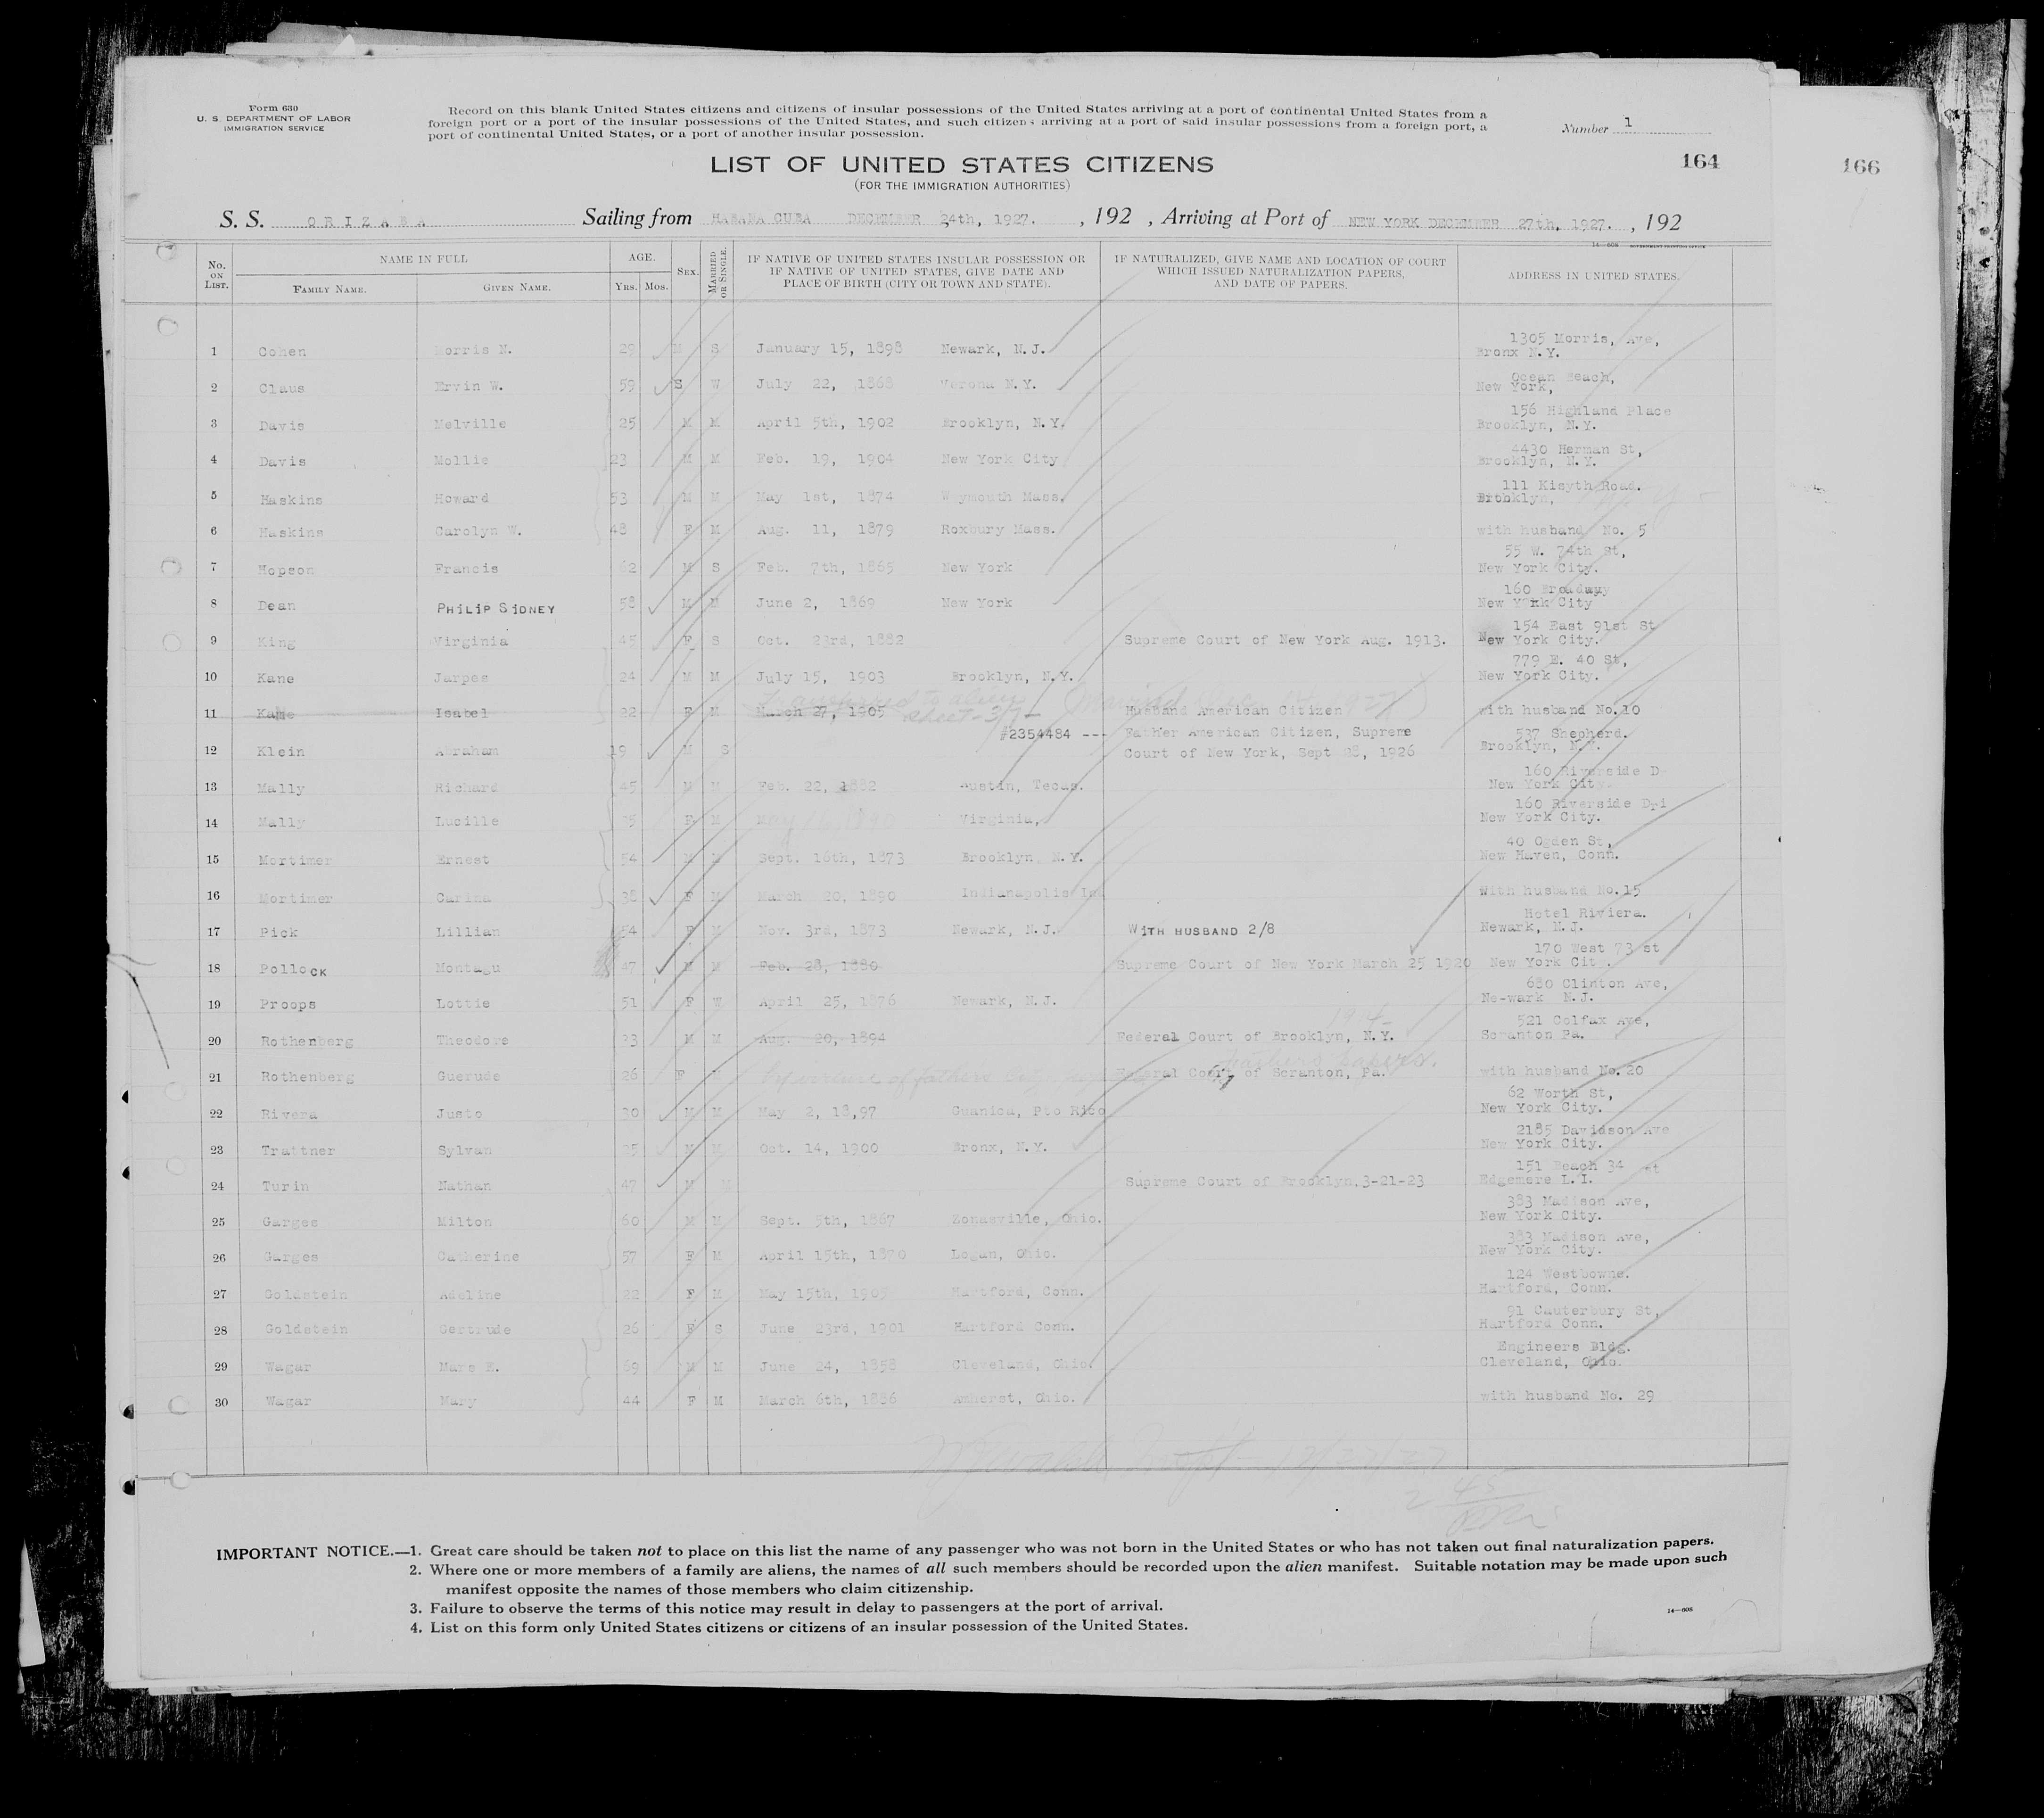 Form 630
U. S. DEPARTMENT OF LABOR
IMMIGRATION SERVICE
Record on this blank United States citizens and citizens of insular possessions of the United States arriving at a port of continental United States from a
foreign port or a port of the insular possessions of the United States, and such citizens arriving at a port of said insular possessions from a foreign port, a
port of continental United States, or a port of another insular possession.
Number 1
LIST OF UNITED STATES CITIZENS
(FOR THE IMMIGRATION AUTHORITIES)
164
166
S. S. ORIZABA Sailing from HABANA CUBA DECEMBER 24th, 1927. , 192 , Arriving at Port of NEW YORK DECEMBER 27th, 1927. , 192
14—608 GOVERNMENT PRINTING OFFICE
No. ON LIST. NAME IN FULL FAMILY NAME. GIVEN NAME. AGE. YRS. MOS. SEX. MARRIED OR SINGLE. IF NATIVE OF UNITED STATES INSULAR POSSESSION OR IF NATIVE OF UNITED STATES, GIVE DATE AND PLACE OF BIRTH (CITY OR TOWN AND STATE). IF NATURALIZED, GIVE NAME AND LOCATION OF COURT WHICH ISSUED NATURALIZATION PAPERS, AND DATE OF PAPERS. ADDRESS IN UNITED STATES.
1305 Morris, Ave,
1 Cohen Morris N. 29 M S January 15, 1898 Newark, N.J. Bronx N.Y.
Ocean Beach,
2 Claus Ervin W. 59 S W July 22, 1868 Verona N.Y. New York,
156 Highland Place
3 Davis Melville 25 M M April 5th, 1902 Brooklyn, N.Y. Brooklyn, N.Y.
4430 Herman St,
4 Davis Mollie 23 M M Feb. 19, 1904 New York City Brooklyn, N.Y.
111 Kisyth Road.
5 Haskins Howard 53 M M May 1st, 1874 Weymouth Mass. Brooklyn,
6 Haskins Carolyn W. 48 F M Aug. 11, 1879 Roxbury Mass. with husband No. 5
55 W. 74th St,
7 Hopson Francis 62 M S Feb. 7th, 1865 New York New York City.
160 Broadway
8 Dean PHILIP SIDNEY 58 M M June 2, 1869 New York New York City
154 East 91st St
9 King Virginia 45 F S Oct. 23rd, 1882 Supreme Court of New York Aug. 1913. New York City.
779 E. 40 St,
10 Kane Jarpes 24 M M July 15, 1903 Brooklyn, N.Y. New York City.
Transferred to alien sheet
11 Kane Isabel 22 F M March 27, 1905 Husband American Citizen with husband No. 10
#2354484 --- Father American Citizen, Supreme 537 Shepherd.
12 Klein Abraham 19 M S Court of New York, Sept 28, 1926 Brooklyn, N.Y.
160 Riverside D
13 Mally Richard 45 M M Feb. 22, 1882 Austin, Tecas. New York City.
160 Riverside Dri
14 Mally Lucille 35 F M Virginia, New York City.
40 Ogden St,
15 Mortimer Ernest 54 M M Sept. 16th, 1873 Brooklyn N.Y. New Haven, Conn.
16 Mortimer Carina 38 F M March 20, 1890 Indianapolis In with husband No. 15
Hotel Riviera.
17 Pick Lillian 54 F M Nov. 3rd, 1873 Newark, N.J. WITH HUSBAND 2/8 Newark, N.J.
170 West 73 st
18 Pollock Montagu 47 M M Feb. 28, 1880 Supreme Court of New York March 25 1920 New York City.
680 Clinton Ave,
19 Proops Lottie 51 F W April 25, 1876 Newark, N.J. Ne-wark N.J.
521 Colfax Ave,
20 Rothenberg Theodore 33 M M Aug. 20, 1894 Federal Court of Brooklyn, N.Y. Scranton Pa.
fathers papers.
21 Rothenberg Guerude 26 F M by virtue of fathers Federal Court of Scranton, Pa. with husband No. 20
62 Worth St,
22 Rivera Justo 30 M M May 2, 18,97 Guanica, Pto Rico New York City.
2185 Davidson Ave
23 Trattner Sylvan 25 M M Oct. 14, 1900 Bronx, N.Y. New York City.
151 Beach 34 st
24 Turin Nathan 47 M M Supreme Court of Brooklyn.3-21-23 Edgemere L.I.
383 Madison Ave,
25 Garges Milton 60 M M Sept. 5th, 1867 Zonasville, Ohio. New York City.
383 Madison Ave,
26 Garges Catherine 57 F M April 15th, 1870 Logan, Ohio. New York City.
124 Westbowne.
27 Goldstein Adeline 22 F M May 15th, 1905 Hartford, Conn. Hartford, Conn.
91 Cauterbury St,
28 Goldstein Gertrude 26 F S June 23rd, 1901 Hartford Conn. Hartford Conn.
Engineers Bldg.
29 Wagar Mars E. 69 M M June 24, 1858 Cleveland, Ohio. Cleveland, Ohio.
30 Wagar Mary 44 F M March 6th, 1886 Amherst, Ohio. with husband No. 29
12/27/27
IMPORTANT NOTICE.—1. Great care should be taken not to place on this list the name of any passenger who was not born in the United States or who has not taken out final naturalization papers.
2. Where one or more members of a family are aliens, the names of all such members should be recorded upon the alien manifest. Suitable notation may be made upon such
manifest opposite the names of those members who claim citizenship.
3. Failure to observe the terms of this notice may result in delay to passengers at the port of arrival.
4. List on this form only United States citizens or citizens of an insular possession of the United States.
14—608